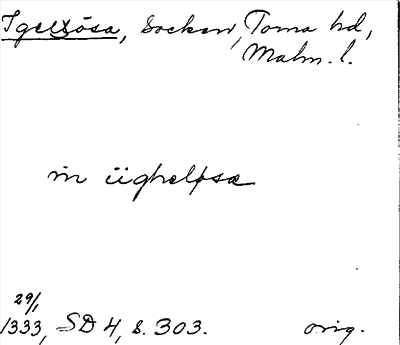 Igelösa, Socken, Torna hd,
Malm. l.
in iigheløsæ
29/1
1333, SD 4, s. 303. orig.